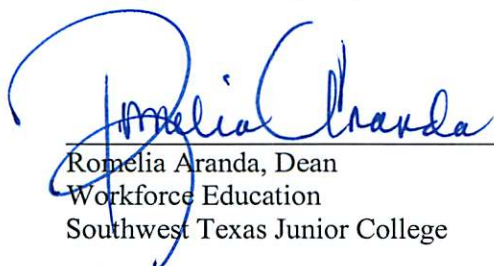 Romelia Aranda
Romelia Aranda, Dean
Workforce Education
Southwest Texas Junior College